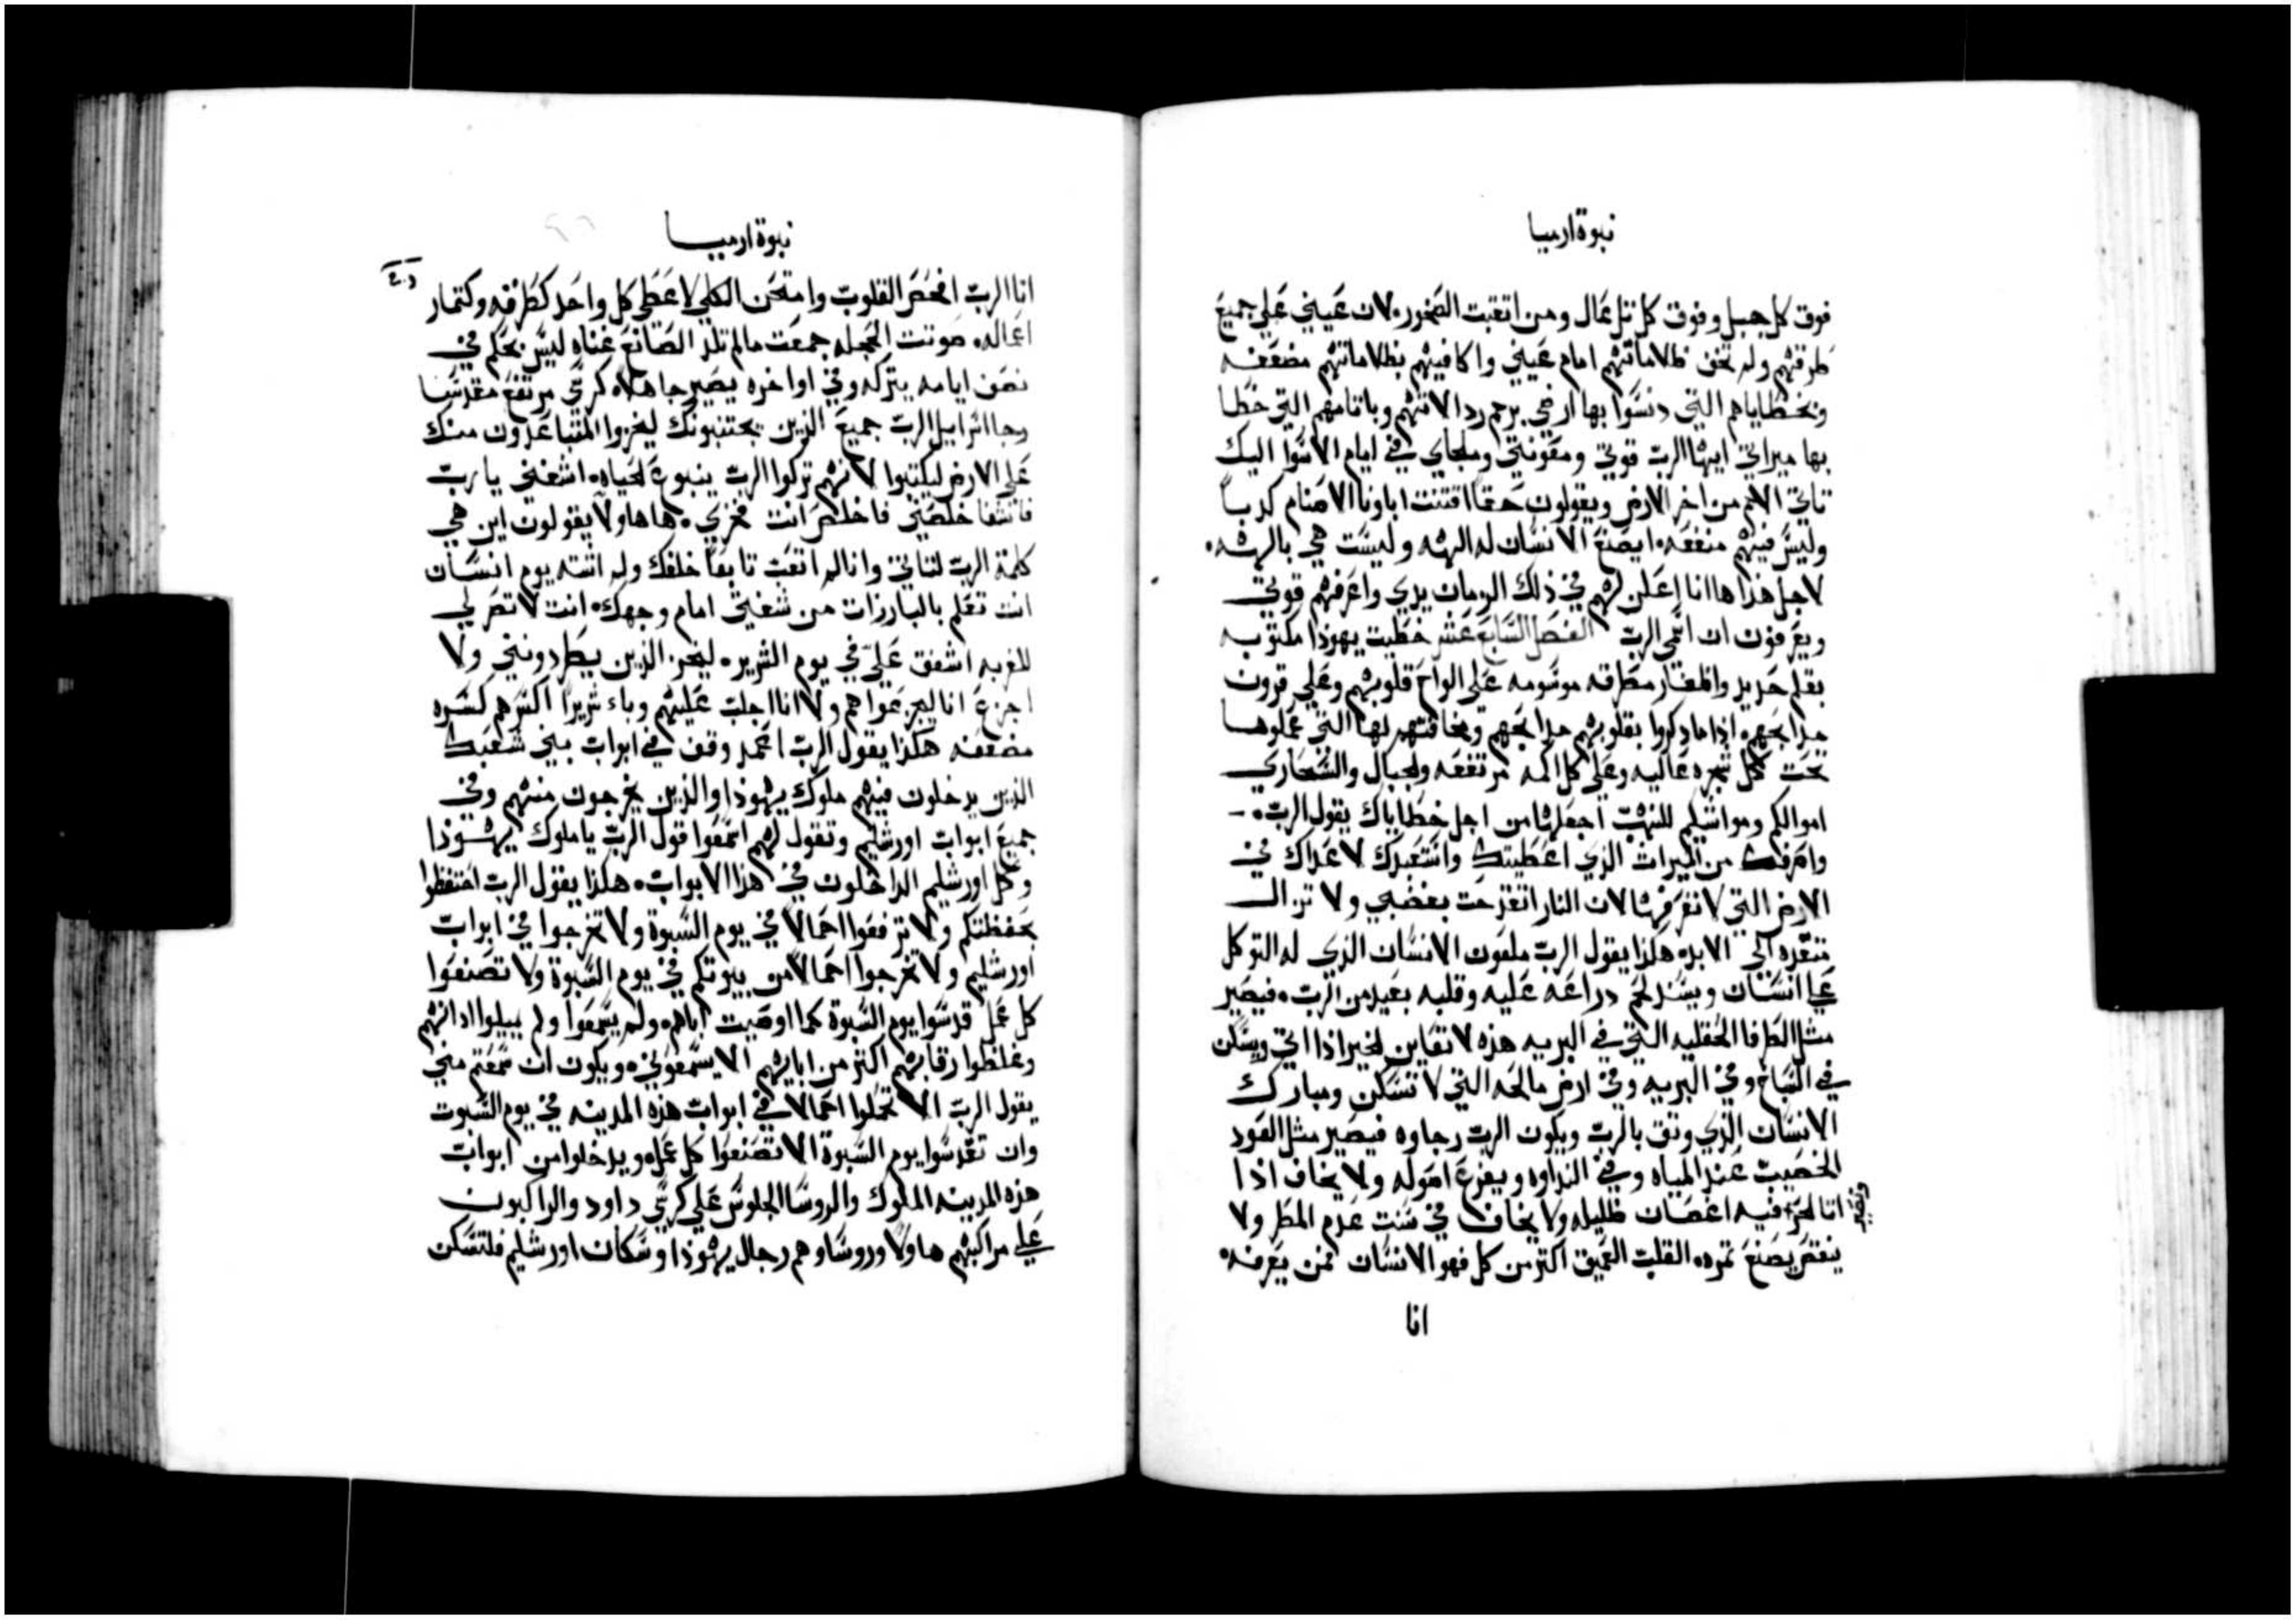 نبوة ارميا
فوق كل جبل وفوق كل تل عال ومن اتقبت الصخور. لان عيني علي جميع
طرقهم ولم تخف ظلاماتهم امام عيني واكافيهم بظلاماتهم مضعفه
وبخطاياهم التي دنسوا بها ارضي برجم رد الاتهم وباتامهم التي خطا
بها ميراثي ايها الرب قوتي ومعونتي وملجاي في ايام الاسوا اليك
تاتي الامم من اخر الارض ويقولون حقا اقتنت اباونا الاصنام كدبا
وليس فيهم منفعه. ايصنع الانسان له الهه وليست هي بالهه.
لاجل هذا ها انا اعلن لهم في ذلك الزمان يدي واعرفهم قوتي
ويعرفون ان اسمي الرب الفصل السابع عشر خطيت يهوذا مكتوبه
بقلم حديد واظفار مطرقه موسومه علي الواح قلوبهم وعلي قرون
مدابحهم. اذا ما دكروا بقلوبهم مدابحهم وبخاقتهم لها التي عملوها
تحت كل شجره عاليه وعلي كل اكمه مرتفعه ولجبال والشعاري
اموالكم ومواشيكم للنهب اجعلها من اجل خطاياك يقول الرب.
وامرفك من الميراث الذي اعطيتك واستعبدك لاعداك في
الارض التي لا تعرفها لان النار اتقدحت بغضبي ولا تزال
متقده الي الابد. هكذا يقول الرب ملعون الانسان الذي له التوكل
علي انسان ويسند لحم دراعه عليه وقلبه بعيد من الرب. فيصير
مثل الطرفا الحقليه التي في البريه هذه لا تعاين لخير اذا اتي ويسكن
في السباخ وفي البريه وفي ارض مالحه التي لا تسكن ومبارك
الانسان الذي وثق بالرب ويكون الرب رجاوه فيصير مثل العود
الخصيب عند المياه وفي النداوه ويفزع اصوله ولا يخاف اذا
اتا لحر فيه اغصان ظليله ولا يخاف في سنت عدم المطر ولا
وتصير
ينقص يصنع تمره. القلب العميق اكتر من كل فهو الانسان فمن يعرفه.
انا
نبوة ارميا
انا الرب افحص القلوب وامتحن الكلي لاعطي كل واحد كطرقه وكتمار
اعماله. صوتت الحجله جمعت ما لم تلد الصانع غناه ليس بحكم في
نصف ايامه يتركه وفي اواخره يصير جاهلا. كرسي مرتفع مقدسنا
رجا اسراييل الرب جميع الذين يجتنبونك ليخزوا المتباعدون منك
علي الارض ليكتبوا لانهم تركوا الرب ينبوع لحياه. اشفني يا رب
فاتشفا خلصني فاخلص انت فخري. ها هاولا يقولون اين هي
كلمة الرب لتاتي وانا لم اتعب تابعا خلفك ولم اشته يوم انسان
انت تعلم بالبارزات من شفتي امام وجهك. انت لا تصر لي
للغربه اشفق علي في يوم الشرير. ليخز الذين يطردونني ولا
اخزي انا ليجزعوا هم ولا انا اجلب عليهم وباء شريرا اكسرهم كسره
مضعفه هكذا يقول الرب اعمد وقف في ابواب بني شعبك
الذين يدخلون فيهم ملوك يهوذا والذين يخرجون منهم وفي
جميع ابواب اورشليم وتقول لهم اسمعوا قول الرب يا ملوك يهوذا
وكل اورشليم الداخلون في هذا الابواب. هكذا يقول الرب احتفظوا
بحفظتكم ولا ترفعوا احمالا في يوم السبوة ولا تخرجوا في ابواب
اورشليم ولا تخرجوا احمالا من بيوتكم في يوم السبوة ولا تصنعوا
كل عمل قدسوا يوم السبوة كما اوصيت اباهم. ولم يسمعوا ولم يميلوا اذانهم
وغلظوا رقابهم اكتر من ابايهم الا يسمعوني. ويكون ان سمعتم مني
يقول الرب الا تحملوا احمالا في ابواب هذه المدينه في يوم السبوت
وان تقدسوا يوم السبوة الا تصنعوا كل عمل. ويدخلوا من ابواب
هذه المدينه الملوك والروسا الجلوس علي كرسي داود والراكبون
علي مراكبهم هاولا وروساوهم رجال يهوذا وسكان اورشليم فلتسكن